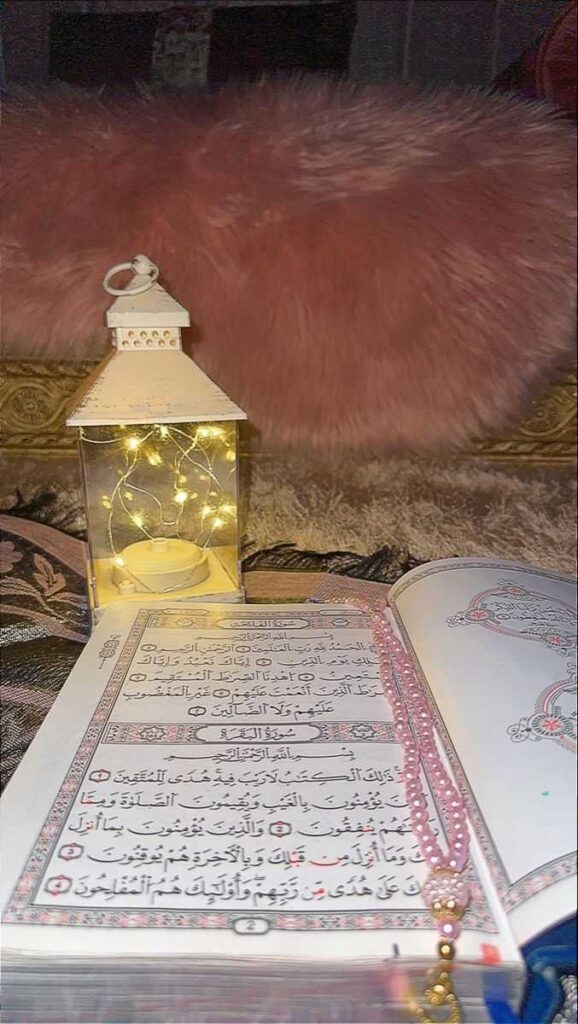 سُورَةُ الفَاتِحَة
بِسْمِ اللَّهِ الرَّحْمَٰنِ الرَّحِيمِ
الْحَمْدُ لِلَّهِ رَبِّ الْعَالَمِينَ ② الرَّحْمَٰنِ الرَّحِيمِ
يَوْمِ الدِّينِ ④ إِيَّاكَ نَعْبُدُ وَإِيَّاكَ
اهْدِنَا الصِّرَاطَ الْمُسْتَقِيمَ ⑥
الَّذِينَ أَنْعَمْتَ عَلَيْهِمْ غَيْرِ الْمَغْضُوبِ
عَلَيْهِمْ وَلَا الضَّالِّينَ
سُورَةُ البَقَرَة
بِسْمِ اللَّهِ الرَّحْمَٰنِ الرَّحِيمِ
ذَٰلِكَ الْكِتَٰبُ لَا رَيْبَ فِيهِ هُدًى لِلْمُتَّقِينَ
يُؤْمِنُونَ بِالْغَيْبِ وَيُقِيمُونَ الصَّلَوٰةَ وَمِمَّا
يُنفِقُونَ وَالَّذِينَ يُؤْمِنُونَ بِمَا أُنزِلَ
وَمَا أُنزِلَ مِن قَبْلِكَ وَبِالْآخِرَةِ هُمْ يُوقِنُونَ
عَلَىٰ هُدًى مِّن رَّبِّهِمْ وَأُولَٰئِكَ هُمُ الْمُفْلِحُونَ
2